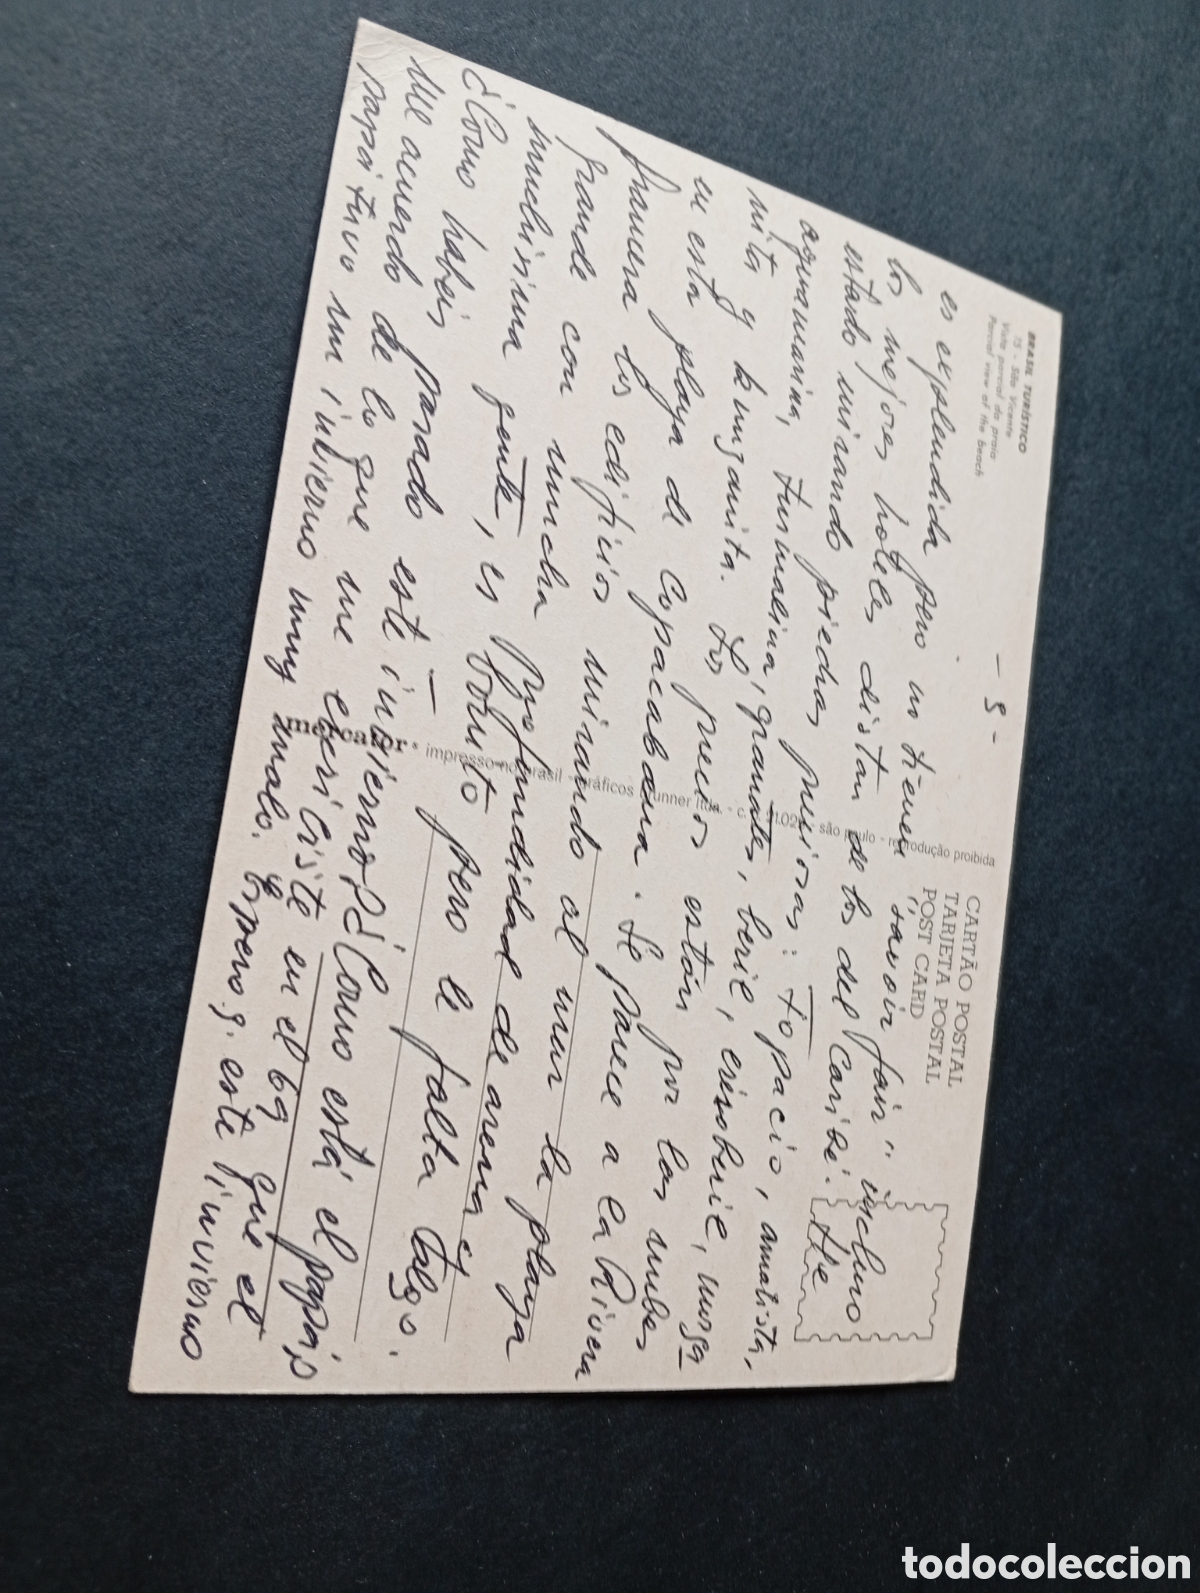 BRASIL TURÍSTICO
15 - São Vicente
Vista parcial da praia
Parcial view of the beach
- 9 -
CARTÃO POSTAL
TARJETA POSTAL
POST CARD
es explendida pero no tienen "savoir fair" incluso
los mejores hoteles distan de los del Caribe. He
estado mirando piedras preciosas: topacio, amatista,
aguamarina, turmalina, granates, berie, crisoberie, morga-
nita y kunzanita. Los precios están por las nubes
en esta playa de Copacabana. Se parece a la Rivera
francesa los edificios mirando al mar la playa
grande con mucha profundidad de arena y
muchisima gente, es bonito pero le falta algo.
¿Como habeis pasado este invierno? ¿Como está el papá?
Me acuerdo de lo que me escribiste en el 69 que el
papá tuvo un invierno muy malo. Espero q. este invierno
mercator - impresso no brasil - gráficos brunner ltda. - são paulo - reprodução proibida
todocoleccion